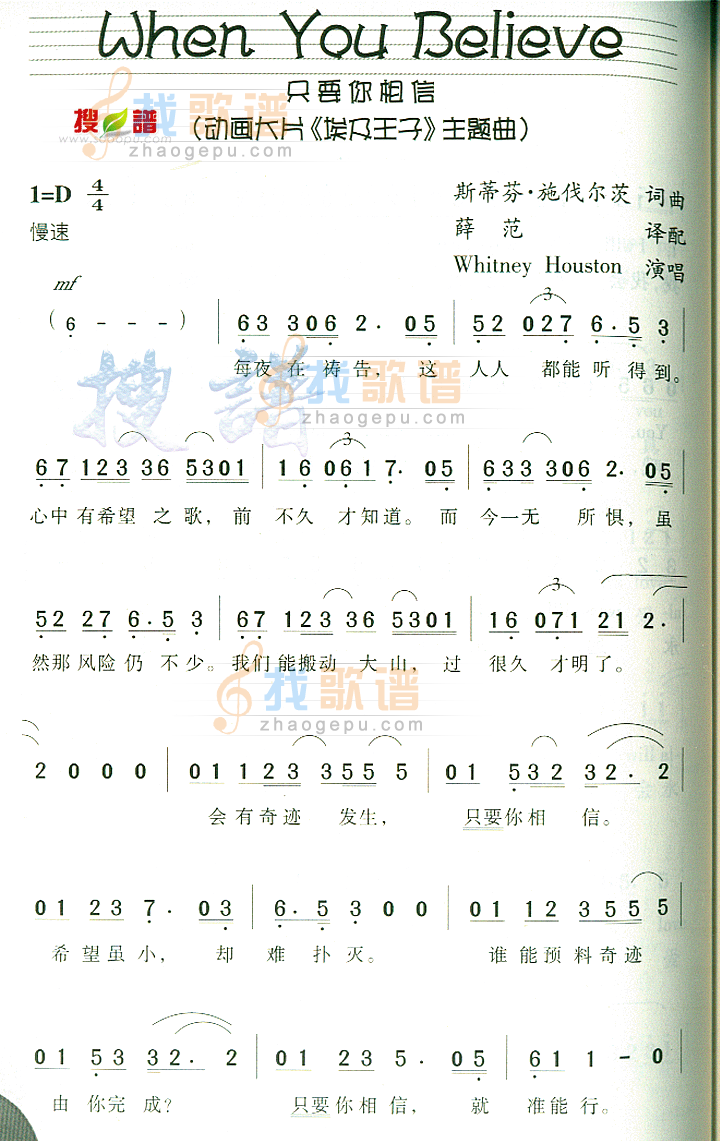 When You Believe
只要你相信
(动画大片《埃及王子》主题曲)
搜谱
www.sooopu.com
找歌谱
zhaogepu.com
1=D 4/4
斯蒂芬·施伐尔茨 词曲
慢速
薛 范 译配
Whitney Houston 演唱
mf
(6 - - -) | 63 306 2. 05 | 52 027 6.5 3 |
每夜 在 祷 告, 这 人人 都能 听 得到。
搜谱
找歌谱
zhaogepu.com
67 123 36 5301 | 16 0617. 05 | 633 3306 2. 05 |
心中 有希望 之歌, 前 不久 才知道。 而 今一无 所 惧, 虽
52 27 6.5 3 | 67 123 36 5301 | 16 071 21 2. |
然那 风险 仍 不 少。 我们 能搬动 大 山, 过 很久 才明了。
找歌谱
zhaogepu.com
2 0 0 0 | 01 123 3555 5 | 01 532 32. 2 |
会 有奇迹 发生, 只要你相 信。
01 23 7. 03 | 6. 53 0 0 | 01 123 3555 5 |
希 望虽 小, 却 难 扑 灭。 谁 能 预 料 奇迹
01 53 32. 2 | 01 235. 05 | 611 1 - 0
由 你完 成? 只要你相信, 就 准能行。